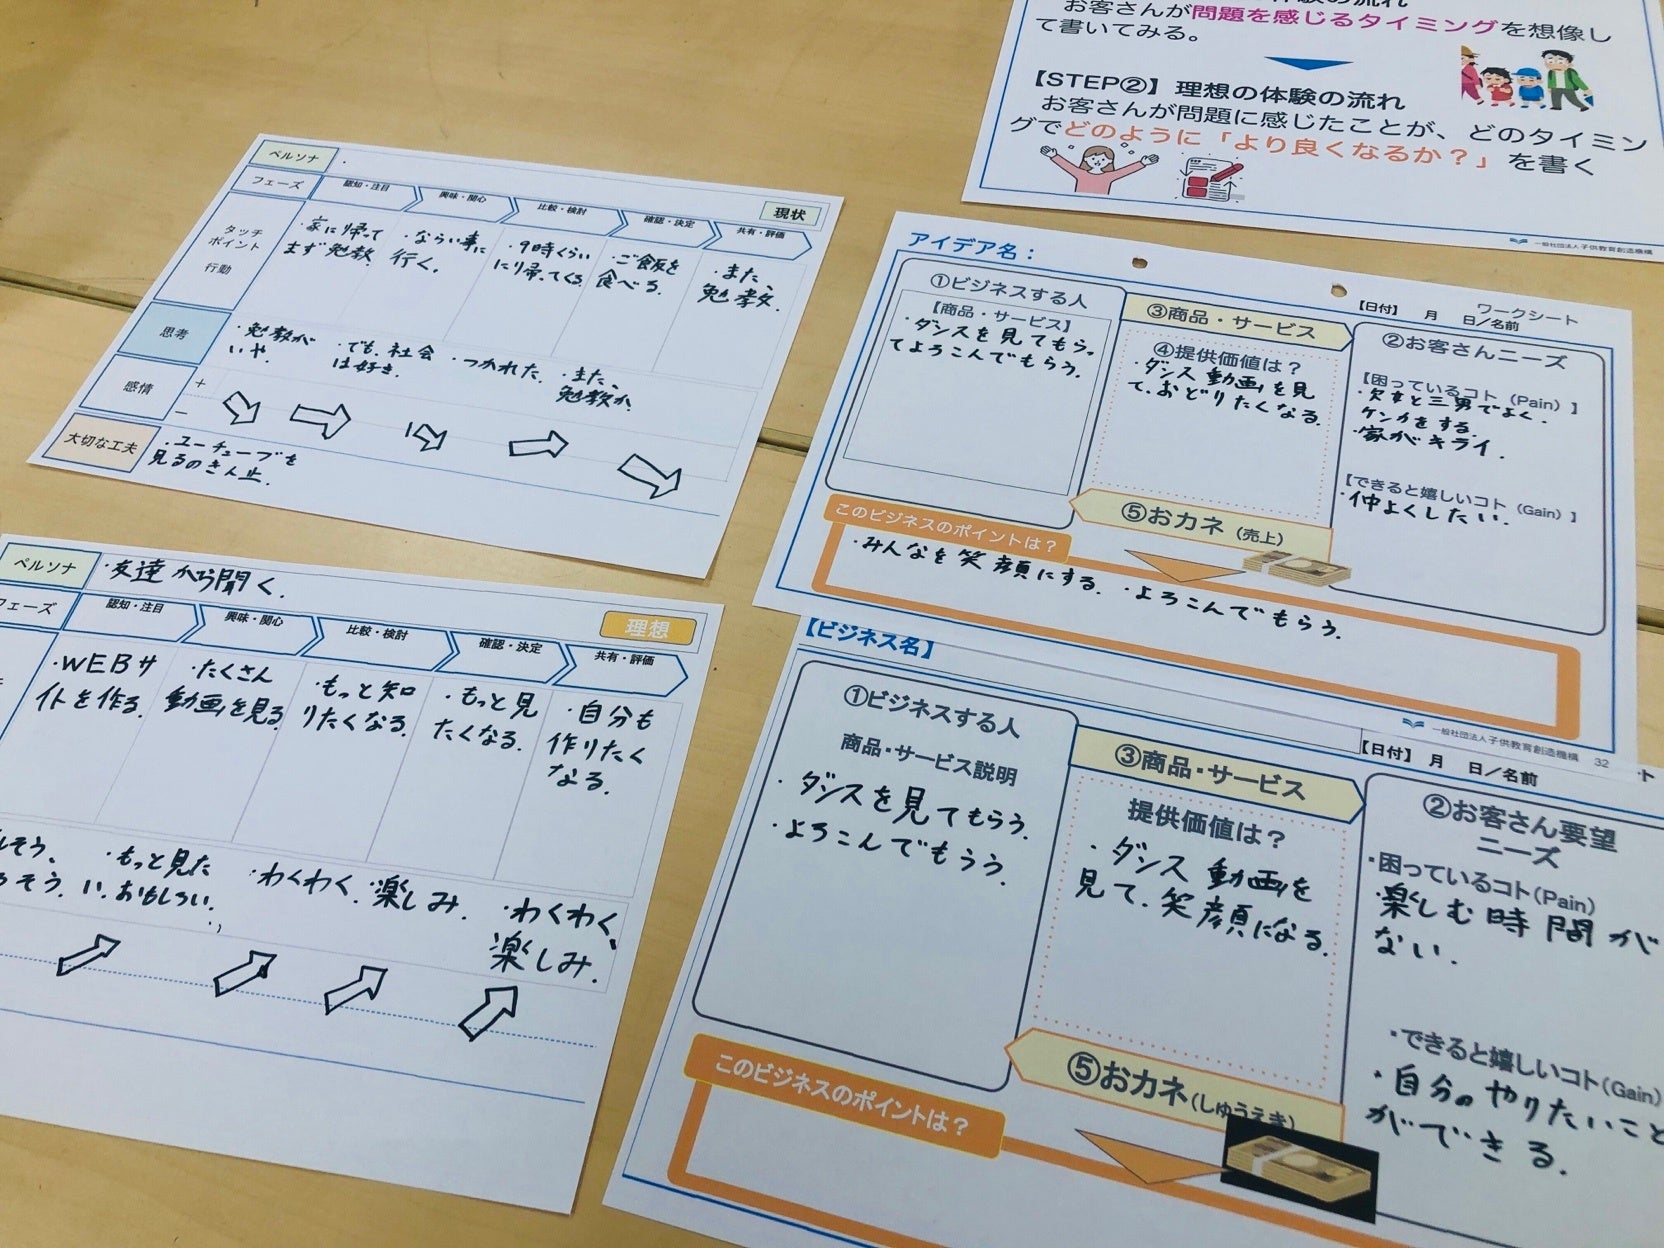 お客さんが問題を感じるタイミングを想像し
て書いてみる。
【STEP②】理想の体験の流れ
お客さんが問題に感じたことが、どのタイミン
グでどのように「より良くなるか？」を書く
一般社団法人子供教育創造機構
ペルソナ
現状
フェーズ
認知・注目
興味・関心
比較・検討
確認・決定
共有・評価
タッチ
ポイント
行動
・家に帰って
まず勉教
・ならい事に
行く。
・9時くらい
にり帰ってくる
・ご飯を
食べる。
・また、
勉教。
思考
・勉教が
いや。
・でも、社会
は好き。
・つかれた。
・また、
勉教か。
感情
+
−
大切な工夫
・ユーチューブを
見るのきん止。
ペルソナ
・友達から聞く。
理想
フェーズ
認知・注目
興味・関心
比較・検討
確認・決定
共有・評価
・WEBサ
イトを作る。
・たくさん
動画を見る
・もっと知
りたくなる。
・もっと見
たくなる。
・自分も
作りたく
なる。
そう、
そう。
・もっと見た
い。おもしろい。
・わくわく。楽しみ。
・わくわく、
楽しみ。
アイデア名：
ワークシート
【日付】　月　　日／名前
①ビジネスする人
【商品・サービス】
・ダンスを見てもらっ
てよろこんでもらう。
③商品・サービス
④提供価値は？
・ダンス動画を見
て、おどりたくなる。
②お客さんニーズ
【困っているコト（Pain）】
・次女と三男でよく、
ケンカをする。
・家がキライ。
【できると嬉しいコト（Gain）】
・仲よくしたい。
⑤おカネ（売上）
このビジネスのポイントは？
・みんなを笑顔にする。・よろこんでもらう。
一般社団法人子供教育創造機構　32
【ビジネス名】
【日付】　月　　日／名前
ート
①ビジネスする人
商品・サービス説明
・ダンスを見てもらう。
・よろこんでもうう。
③商品・サービス
提供価値は？
・ダンス動画を
見て、笑顔になる。
②お客さん要望
ニーズ
・困っているコト(Pain)
・楽しむ時間が
ない。
・できると嬉しいコト(Gain)
・自分のやりたいこと
ができる。
⑤おカネ(しゅうえき)
このビジネスのポイントは？